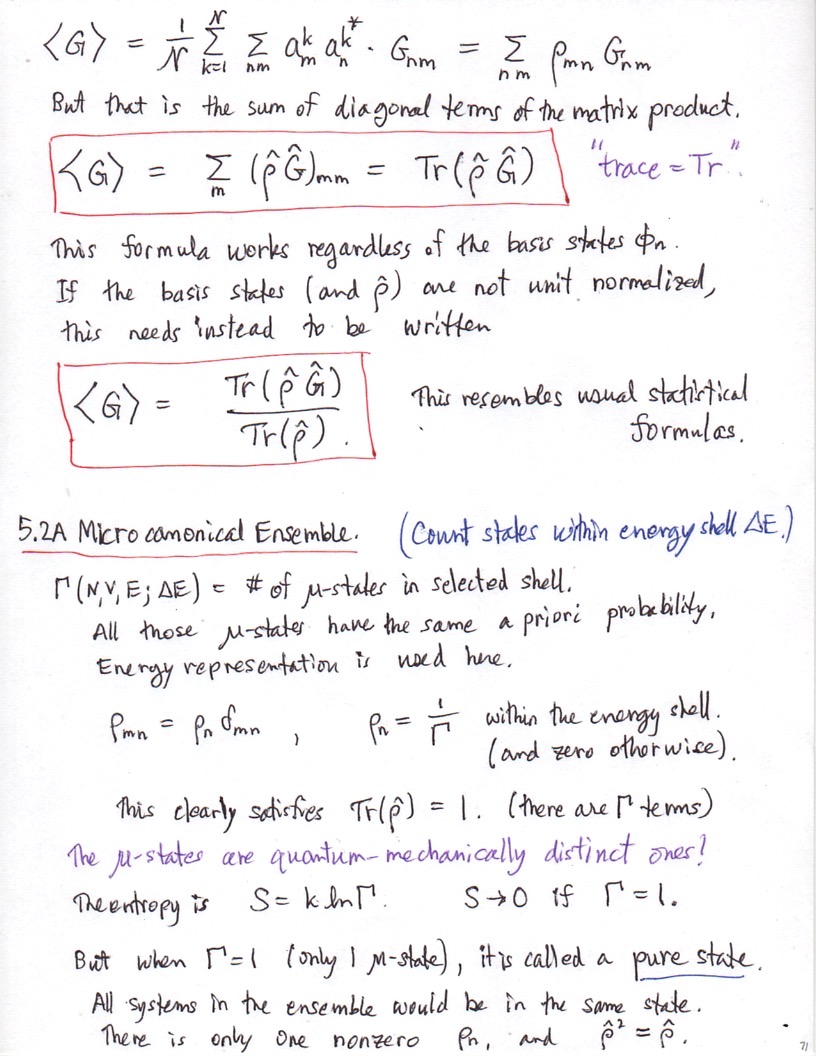 ⟨G⟩ = 1/N Σ_{k=1}^{N} Σ_{nm} a_m^k a_n^{k*} · G_{nm} = Σ_{nm} ρ_{mn} G_{nm}
But that is the sum of diagonal terms of the matrix product.
⟨G⟩ = Σ_m (ρ̂Ĝ)_{mm} = Tr(ρ̂Ĝ) "trace = Tr".
This formula works regardless of the basis states ϕ_n.
If the basis states (and ρ̂) are not unit normalized,
this needs instead to be written
⟨G⟩ = Tr(ρ̂Ĝ)/Tr(ρ̂). This resembles usual statistical
formulas.
5.2A Microcanonical Ensemble. (Count states within energy shell ΔE.)
Γ(N,V,E; ΔE) = # of μ-states in selected shell.
All those μ-states have the same a priori probability,
Energy representation is used here.
ρ_{mn} = ρ_n δ_{mn} , ρ_n = 1/Γ within the energy shell.
(and zero otherwise).
This clearly satisfies Tr(ρ̂) = 1. (there are Γ terms)
The μ-states are quantum-mechanically distinct ones!
The entropy is S = k ln Γ. S → 0 if Γ = 1.
But when Γ = 1 (only 1 μ-state), it is called a pure state.
All systems in the ensemble would be in the same state.
There is only one nonzero ρ_n, and ρ̂² = ρ̂.
71